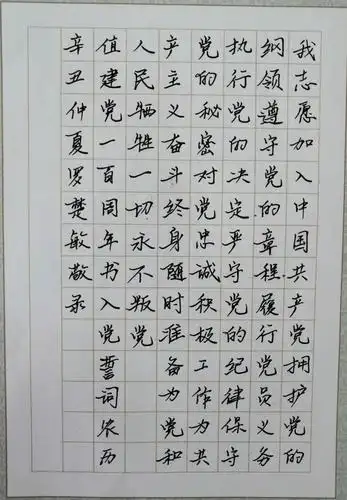 我志愿加入中国共产党拥护党的
纲领遵守党的章程履行党员义务
执行党的决定严守党的纪律保守
党的秘密对党忠诚积极工作为共
产主义奋斗终身随时准备为党和
人民牺牲一切永不叛党
值建党一百周年书入党誓词农历
辛丑仲夏罗楚敏敬录